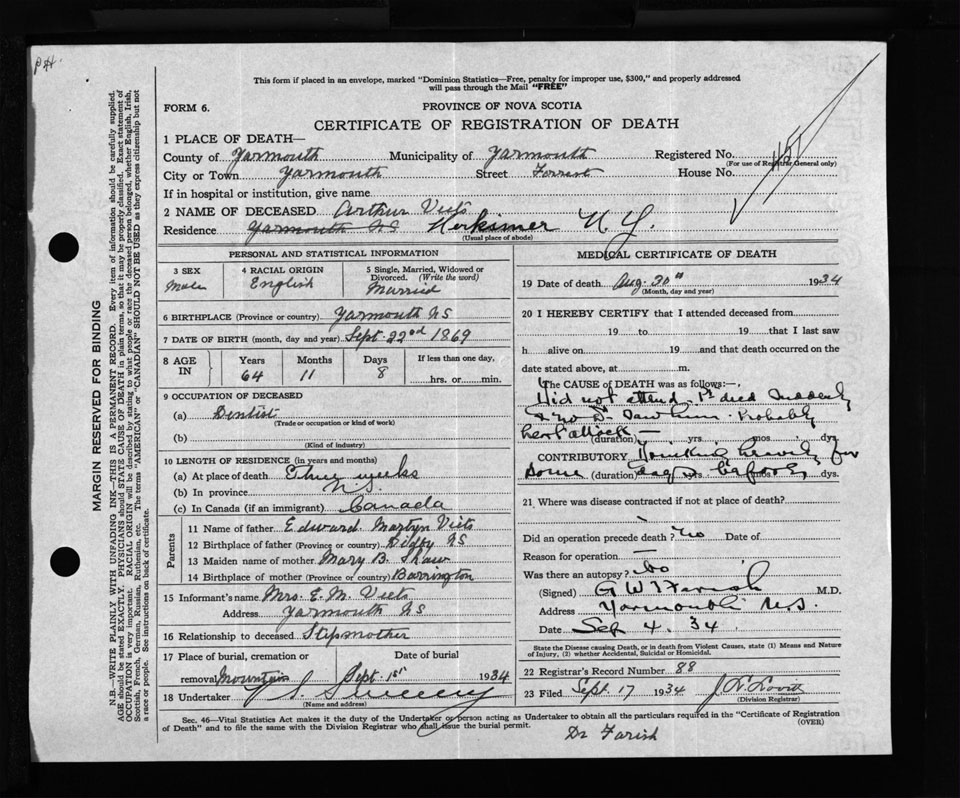 P.H.
This form if placed in an envelope, marked "Dominion Statistics—Free, penalty for improper use, $300," and properly addressed
will pass through the Mail "FREE"
FORM 6.
PROVINCE OF NOVA SCOTIA
CERTIFICATE OF REGISTRATION OF DEATH
1 PLACE OF DEATH—
County of Yarmouth Municipality of Yarmouth Registered No.
(For use of Registrar General only)
City or Town Yarmouth Street Forrest House No.
If in hospital or institution, give name
2 NAME OF DECEASED Arthur Viets
Residence Yarmouth NS Herkimer N.Y.
(Usual place of abode)
PERSONAL AND STATISTICAL INFORMATION
3 SEX 4 RACIAL ORIGIN 5 Single, Married, Widowed or
Divorced. (Write the word)
Male English Married
6 BIRTHPLACE (Province or country) Yarmouth NS
7 DATE OF BIRTH (month, day and year) Sept. 22nd 1869
8 AGE IN Years Months Days If less than one day,
64 11 8 hrs. or min.
9 OCCUPATION OF DECEASED
(a) Dentist
(Trade or occupation or kind of work)
(b)
(Kind of industry)
10 LENGTH OF RESIDENCE (in years and months)
(a) At place of death Three weeks
(b) In province N.S.
(c) In Canada (if an immigrant) Canada
Parents
11 Name of father Edward Martyn Viets
12 Birthplace of father (Province or country) Digby NS
13 Maiden name of mother Mary B. Shaw
14 Birthplace of mother (Province or country) Barrington
15 Informant's name Mrs. E. M. Viets
Address Yarmouth NS
16 Relationship to deceased Stepmother
17 Place of burial, cremation or Date of burial
removal Mountain Sept. 1st 1934
18 Undertaker V S Sweeny
(Name and address)
MEDICAL CERTIFICATE OF DEATH
19 Date of death Aug. 30th 1934
(Month, day and year)
20 I HEREBY CERTIFY that I attended deceased from
19 to 19 that I last saw
h alive on 19 and that death occurred on the
date stated above, at m.
The CAUSE OF DEATH was as follows:—
Did not attend. Pt died suddenly
Probably
heart attack —
(duration) yrs. mos. dys.
CONTRIBUTORY Drinking heavily for
some (duration) days yrs. before mos. dys.
21 Where was disease contracted if not at place of death?
Did an operation precede death? No Date of
Reason for operation —
Was there an autopsy? No
(Signed) G W T Farish M.D.
Address Yarmouth N.S.
Date Sep 4. 34
State the Disease causing Death, or in death from Violent Causes, state (1) Means and Nature
of Injury, (2) whether Accidental, Suicidal or Homicidal.
22 Registrar's Record Number 88
23 Filed Sept. 17 1934 Lovitt
(Division Registrar)
Sec. 46—Vital Statistics Act makes it the duty of the Undertaker or person acting as Undertaker to obtain all the particulars required in the "Certificate of Registration
of Death" and to file the same with the Division Registrar who shall issue the burial permit.
(OVER)
Dr Farish
MARGIN RESERVED FOR BINDING
N.B.—WRITE PLAINLY WITH UNFADING INK—THIS IS A PERMANENT RECORD. Every item of information should be carefully supplied.
AGE should be stated EXACTLY. PHYSICIANS should STATE CAUSE OF DEATH in plain terms, so that it may be properly classified. Exact statement of
OCCUPATION is very important. RACIAL ORIGIN will be described by stating to what people or race the deceased person belonged, whether English, Irish,
Scottish, French, German, Russian, Ruthenian, etc. The terms "AMERICAN" or "CANADIAN" SHOULD NOT BE USED as they express citizenship but not
a race or people. See instructions on back of certificate.